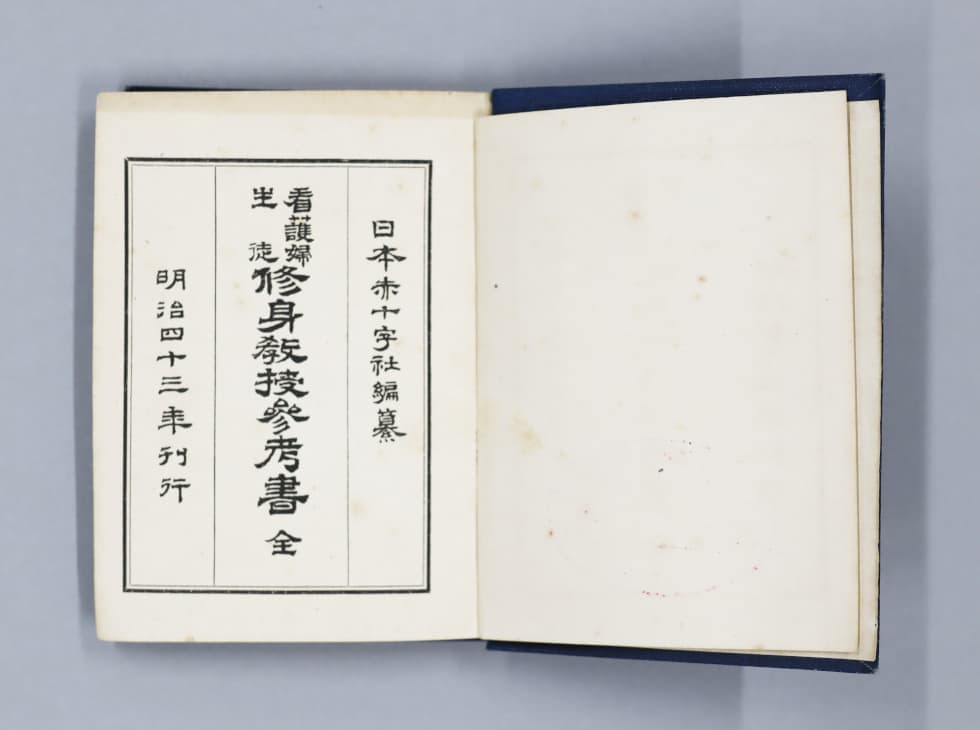 日本赤十字社編纂
看護婦生徒修身教授參考書 全
明治四十三年刊行